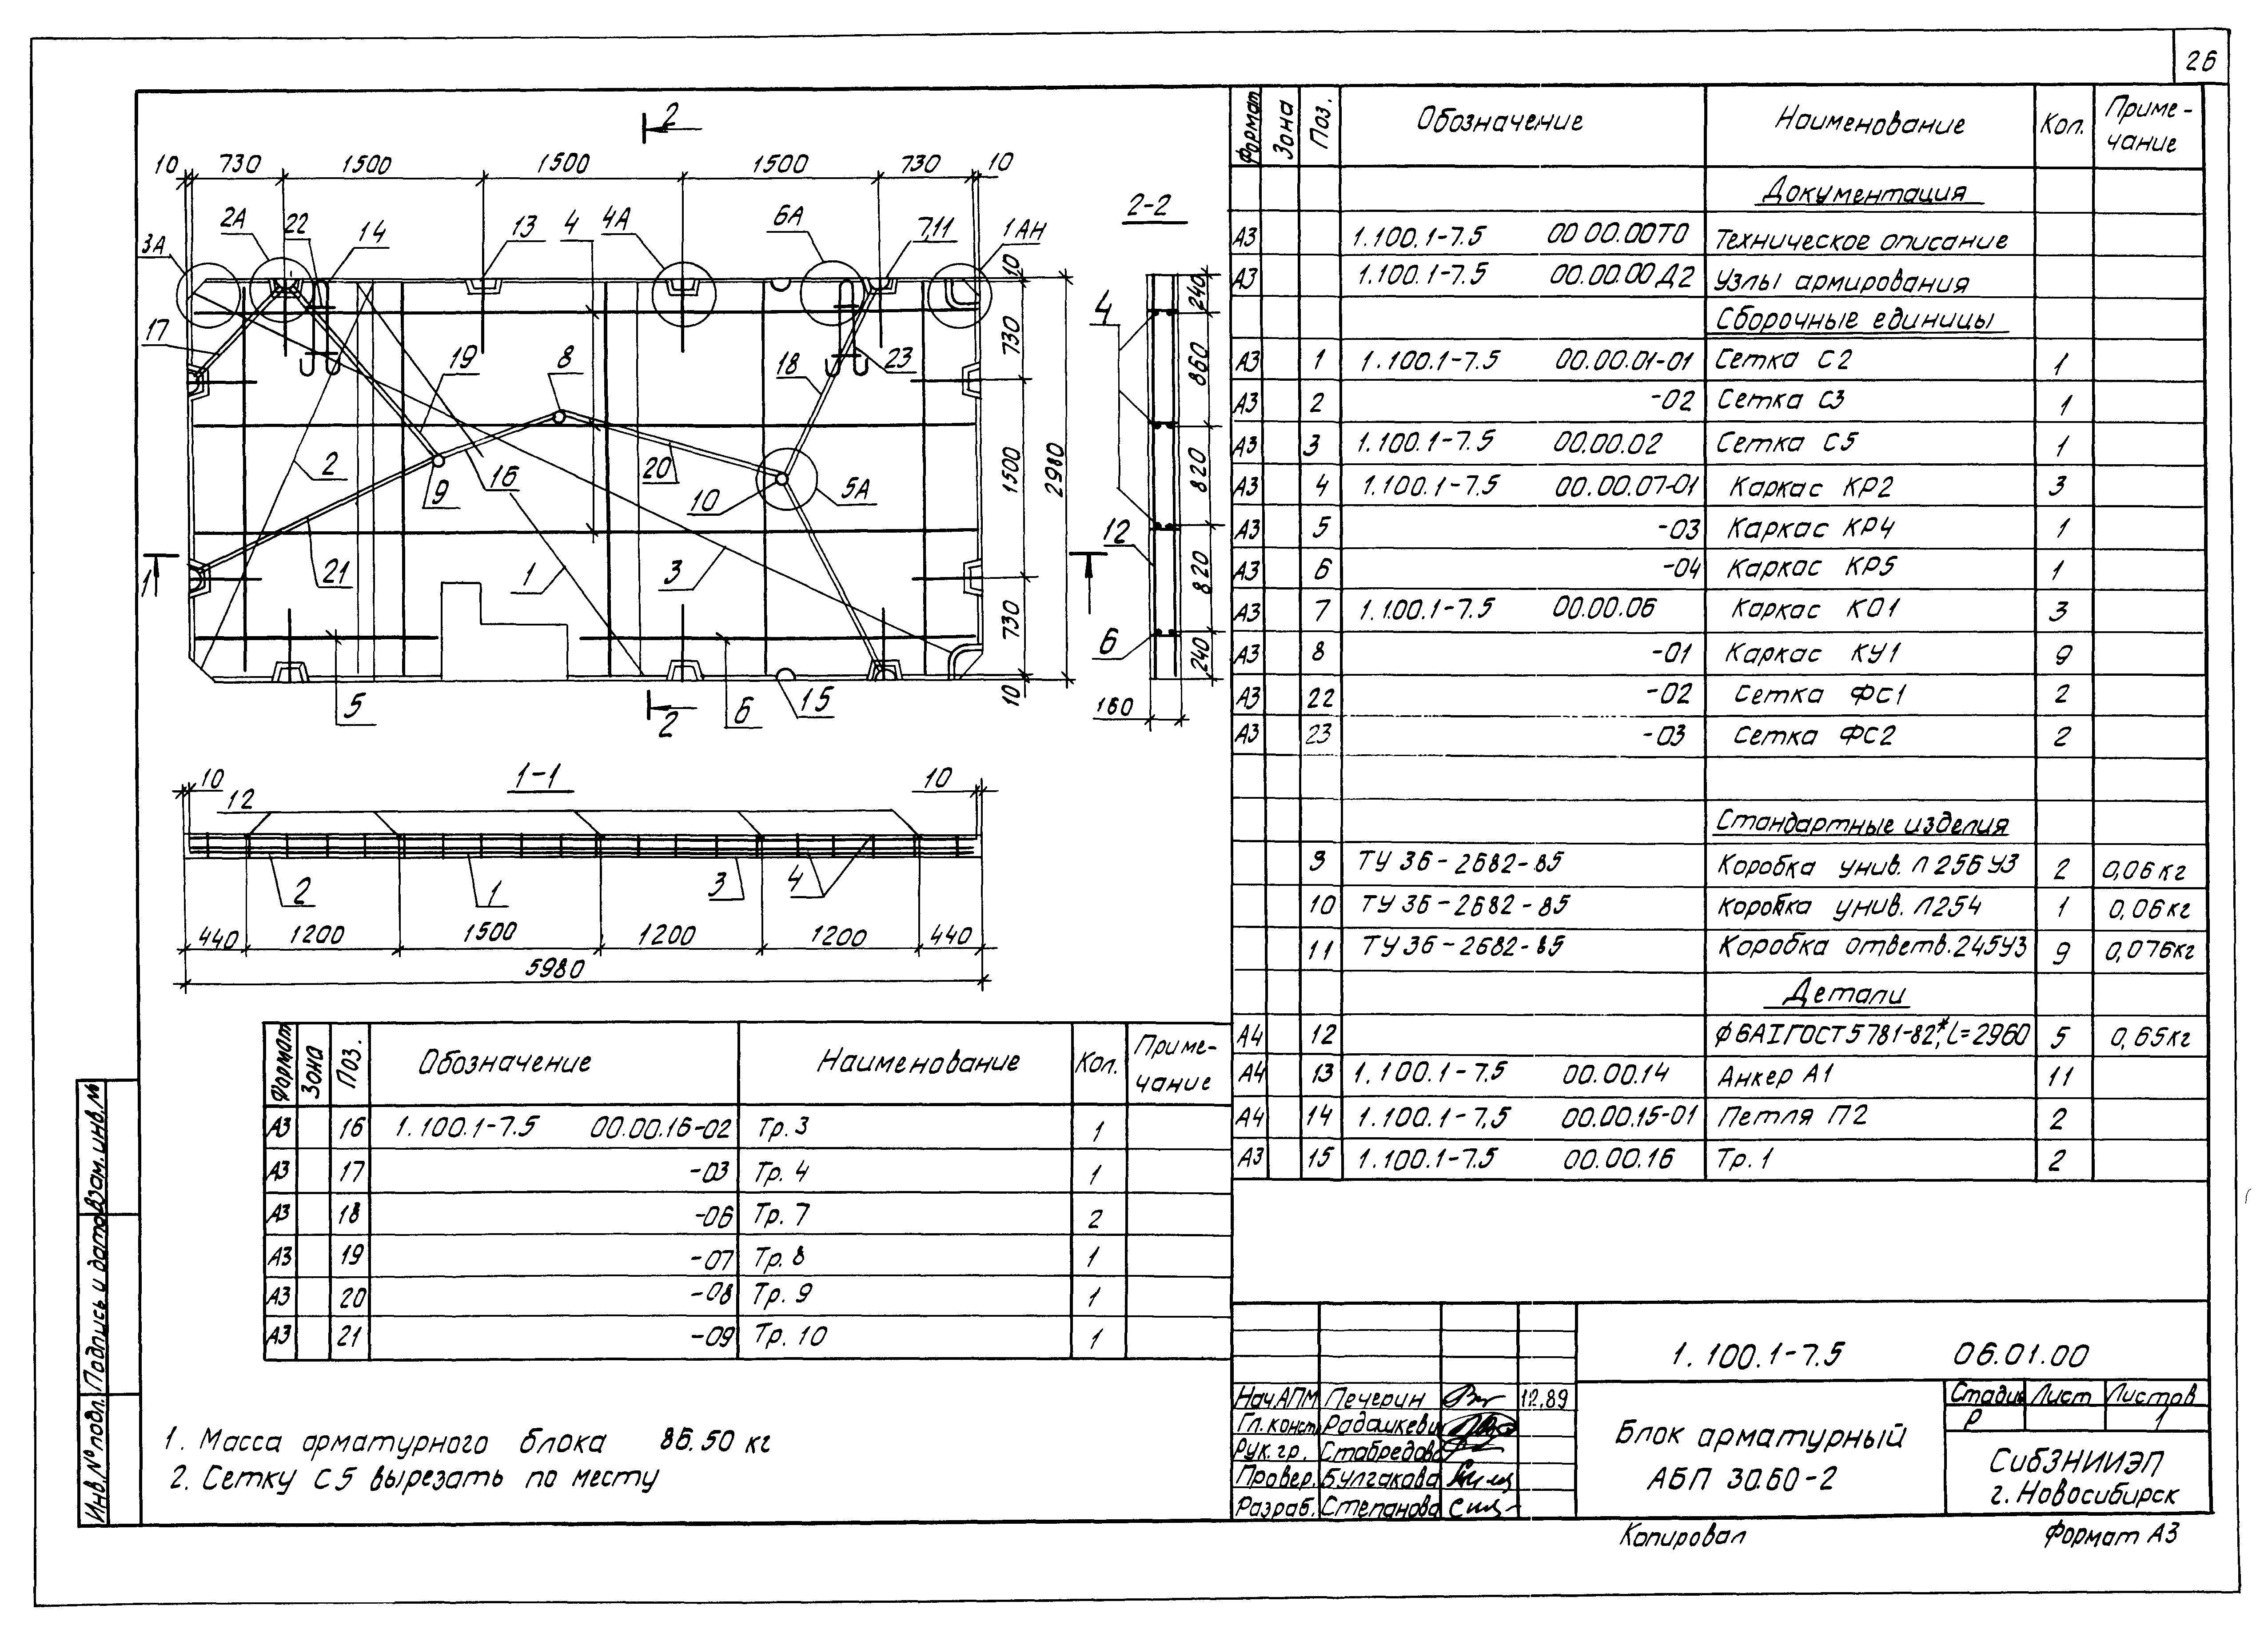 26
2
10 730 1500 1500 1500 730 10
3А 2А 22 14 13 4 4А 6А 7,11 1АН
17 19 8 18 23
2 9 16 20 10 5А
21 1 3
1 1
5 2 6 15
10 730 1500 730 10
2980
2-2
4
12
6
240 860 820 820 240
160
1-1
10 10
12
2 1 3 4
440 1200 1500 1200 1200 440
5980
Формат Зона Поз. Обозначение Наименование Кол. Приме-
чание
Документация
А3 1.100.1-7.5 00.00.00ТО Техническое описание
А3 1.100.1-7.5 00.00.00Д2 Узлы армирования
Сборочные единицы
А3 1 1.100.1-7.5 00.00.01-01 Сетка С2 1
А3 2 -02 Сетка С3 1
А3 3 1.100.1-7.5 00.00.02 Сетка С5 1
А3 4 1.100.1-7.5 00.00.07-01 Каркас КР2 3
А3 5 -03 Каркас КР4 1
А3 6 -04 Каркас КР5 1
А3 7 1.100.1-7.5 00.00.06 Каркас КО1 3
А3 8 -01 Каркас КУ1 9
А3 22 -02 Сетка ФС1 2
А3 23 -03 Сетка ФС2 2
Стандартные изделия
9 ТУ 36-2682-85 Коробка унив. Л256У3 2 0,06кг
10 ТУ 36-2682-85 Коробка унив. Л254 1 0,06кг
11 ТУ 36-2682-85 Коробка ответв.245У3 9 0,076кг
Детали
А4 12 ф6АIГОСТ5781-82*, L=2960 5 0,65кг
А4 13 1.100.1-7.5 00.00.14 Анкер А1 11
А4 14 1.100.1-7.5 00.00.15-01 Петля П2 2
А3 15 1.100.1-7.5 00.00.16 Тр.1 2
Формат Зона Поз. Обозначение Наименование Кол. Приме-
чание
А3 16 1.100.1-7.5 00.00.16-02 Тр.3 1
А3 17 -03 Тр. 4 1
А3 18 -06 Тр. 7 2
А3 19 -07 Тр. 8 1
А3 20 -08 Тр. 9 1
А3 21 -09 Тр. 10 1
1. Масса арматурного блока 86.50 кг
2. Сетку С5 вырезать по месту
Инв.№ подл. Подпись и дата Взам.инв.№
1.100.1-7.5 06.01.00
Нач.АПМ Печерин 12.89
Гл.конст. Радашкевич
Рук.гр. Стабредова
Провер. Булгакова
Разраб. Степанова
Блок арматурный
АБП 30.60-2
Стадия Лист Листов
Р 1
СибЗНИИЭП
г. Новосибирск
Копировал Формат А3